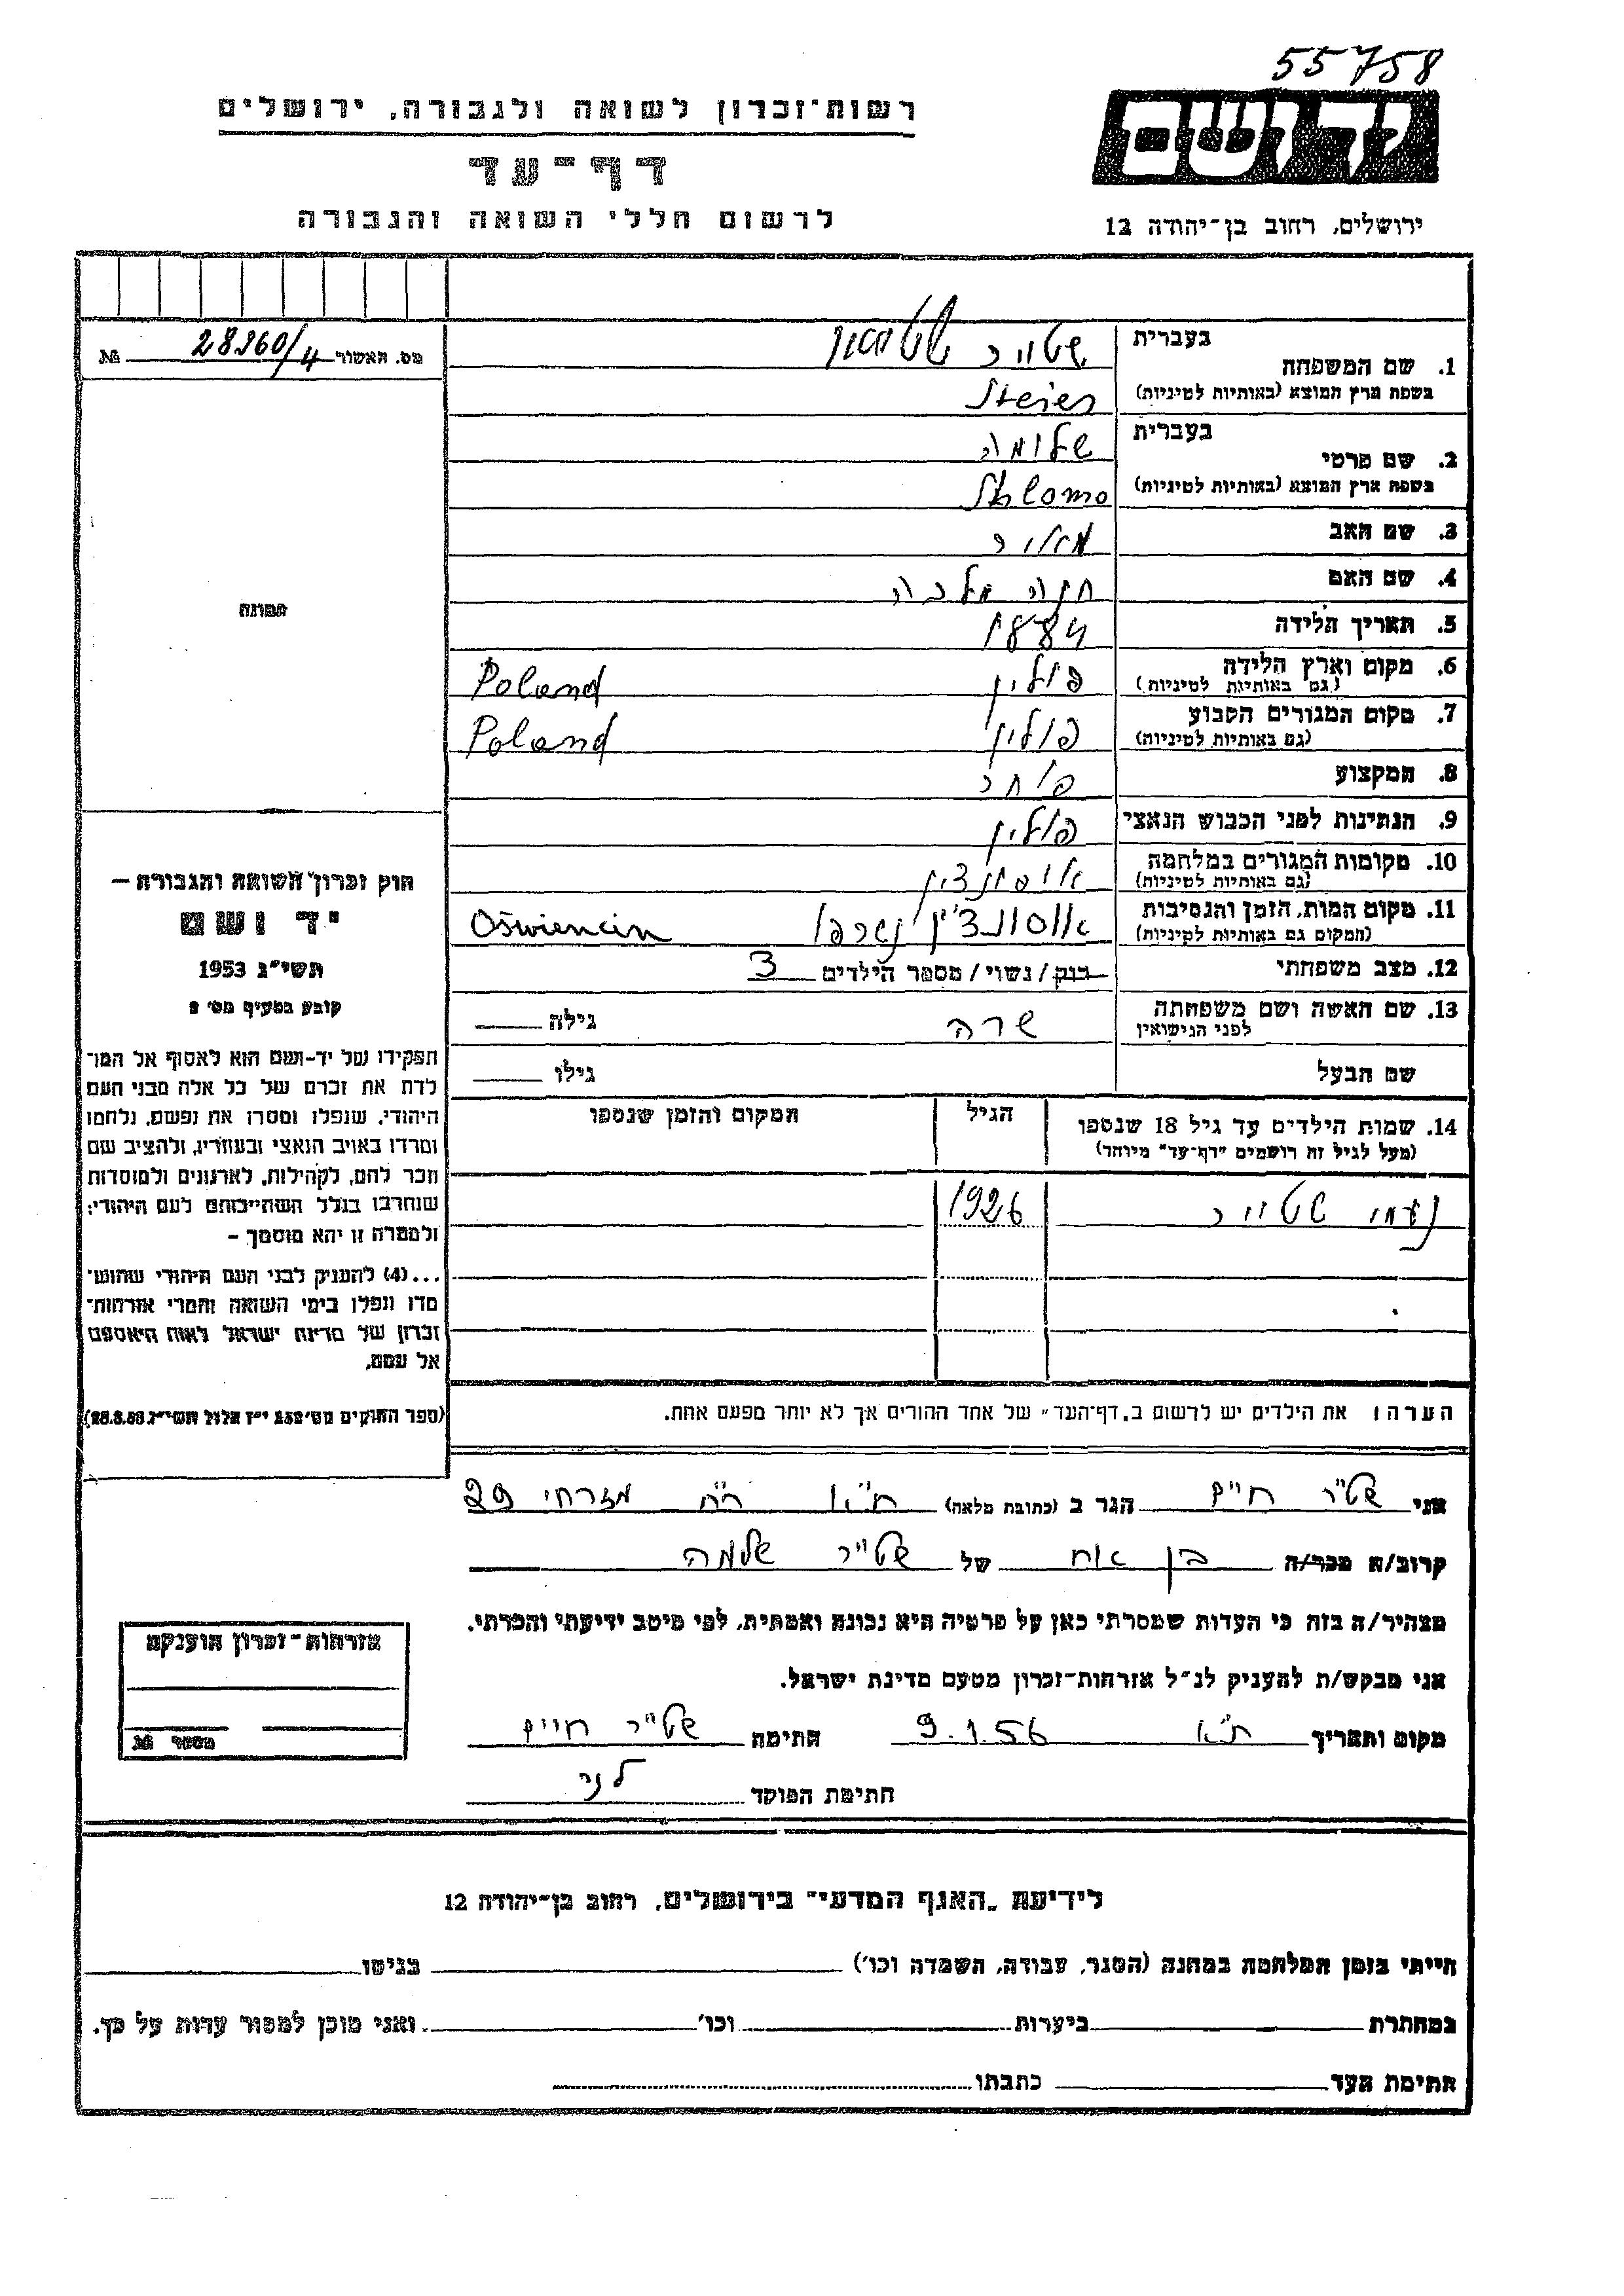 55758
יד ושם
ירושלים, רחוב בן־יהודה 12
רשות־זכרון לשואה ולגבורה, ירושלים
דף־עד
לרשום חללי השואה והגבורה
מס. האשור 28360/4 №
תמונה
חוק זכרון השואה והגבורה —
יד ושם
תשי״ג 1953
קובע בסעיף מס׳ 2
תפקידו של יד-ושם הוא לאסוף אל המו־
לדת את זכרם של כל אלה מבני העם
היהודי, שנפלו ומסרו את נפשם, נלחמו
ומרדו באויב הנאצי ובעוזריו, ולהציב שם
וזכר להם, לקהילות, לארגונים ולמוסדות
שנחרבו בגלל השתייכותם לעם היהודי;
ולמטרה זו יהא מוסמך —
...(4) להעניק לבני העם היהודי שהוש־
מדו ונפלו בימי השואה והמרי אזרחות־
זכרון של מדינת ישראל לאות היאספם
אל עמם.
(ספר החוקים מס׳ 132 י״ז אלול תשי״ג 28.8.53)
בעברית שטייר
1. שם המשפחה
בשפת ארץ המוצא (באותיות לטיניות) Steier
בעברית שלומה
2. שם פרטי
בשפת ארץ המוצא (באותיות לטיניות) Shlomo
3. שם האב מאיר
4. שם האם חנה מלכה
5. תאריך הלידה 1884
6. מקום וארץ הלידה פולין Poland
(גם באותיות לטיניות)
7. מקום המגורים הקבוע פולין Poland
(גם באותיות לטיניות)
8. המקצוע סוחר
9. הנתינות לפני הכבוש הנאצי פולין
10. מקומות המגורים במלחמה
(גם באותיות לטיניות)
11. מקום המות, הזמן והנסיבות נשרפו Oświencin
(המקום גם באותיות לטיניות)
12. מצב משפחתי רוק / נשוי / מספר הילדים 3
13. שם האשה ושם משפחתה שרה גילה
לפני הנישואין
שם הבעל גילו
14. שמות הילדים עד גיל 18 שנספו הגיל המקום והזמן שנספו
(מעל לגיל זה רושמים ״דף־עד״ מיוחד)
נעמי שטייר 1926
הערה: את הילדים יש לרשום ב„דף־העד״ של אחד ההורים אך לא יותר מפעם אחת.
אני שטייר חיים הגר ב (כתובת מלאה) ת״א רח מזרחי 29
קרוב/ה מכר/ה בן אח של שטייר שלמה
מצהיר/ה בזה כי העדות שמסרתי כאן על פרטיה היא נכונה ואמתית, לפי מיטב ידיעתי והכרתי.
אני מבקש/ת להעניק לנ״ל אזרחות־זכרון מטעם מדינת ישראל.
מקום ותאריך ת״א 9.1.56 חתימה שטייר חיים
חתימת הפוקד
אזרחות־זכרון הוענקה
מספר №
לידיעת „האגף המדעי״ בירושלים, רחוב בן־יהודה 12
הייתי בזמן המלחמה במחנה (הסגר, עבודה, השמדה וכו׳) בגיטו
במחתרת ביערות וכו׳ ואני מוכן למסור עדות על כך.
חתימת העד כתבתו